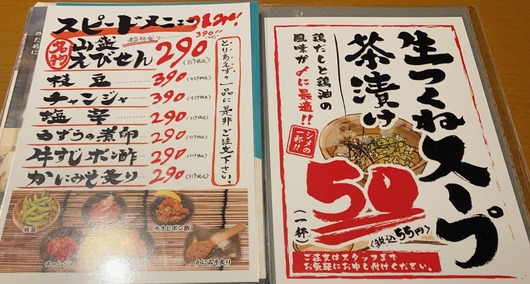 スピードメニュー
390!!
名物
山盛
えびせん 290
とりあえずの一品に是非ご注文下さい。
枝豆 390
チャンジャ 390
塩辛 290
うずらの煮卵 290
牛すじポン酢 290
かにみそ炙り 290
枝豆
牛すじポン酢
かにみそ炙り
生つくねスープ
茶漬け
鶏だしと鶏油の
風味が〆に最適!!
シメの
一杯!!
50
(一杯)
(税込55円)
ご注文はスタッフまで
お気軽にお申し付けください。